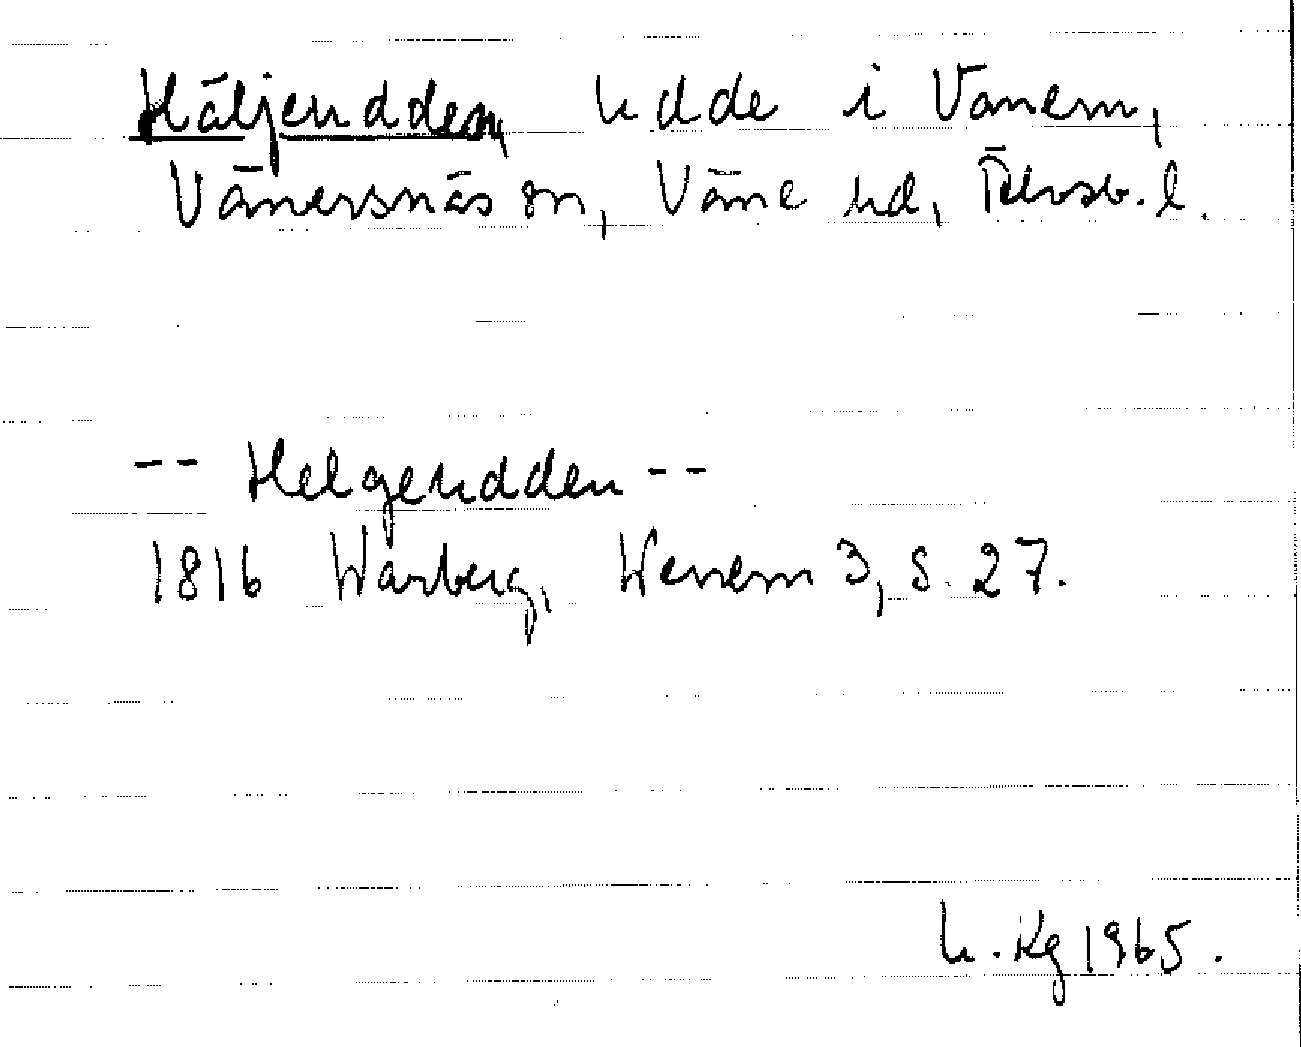 Häljeudden, udde i Vänern,
Vänersnäs sn, Väne hd, Älvsb. l.
-- Helgeudden --
1816 Warberg, Wenern 3, s. 27.
U. Kg 1965.